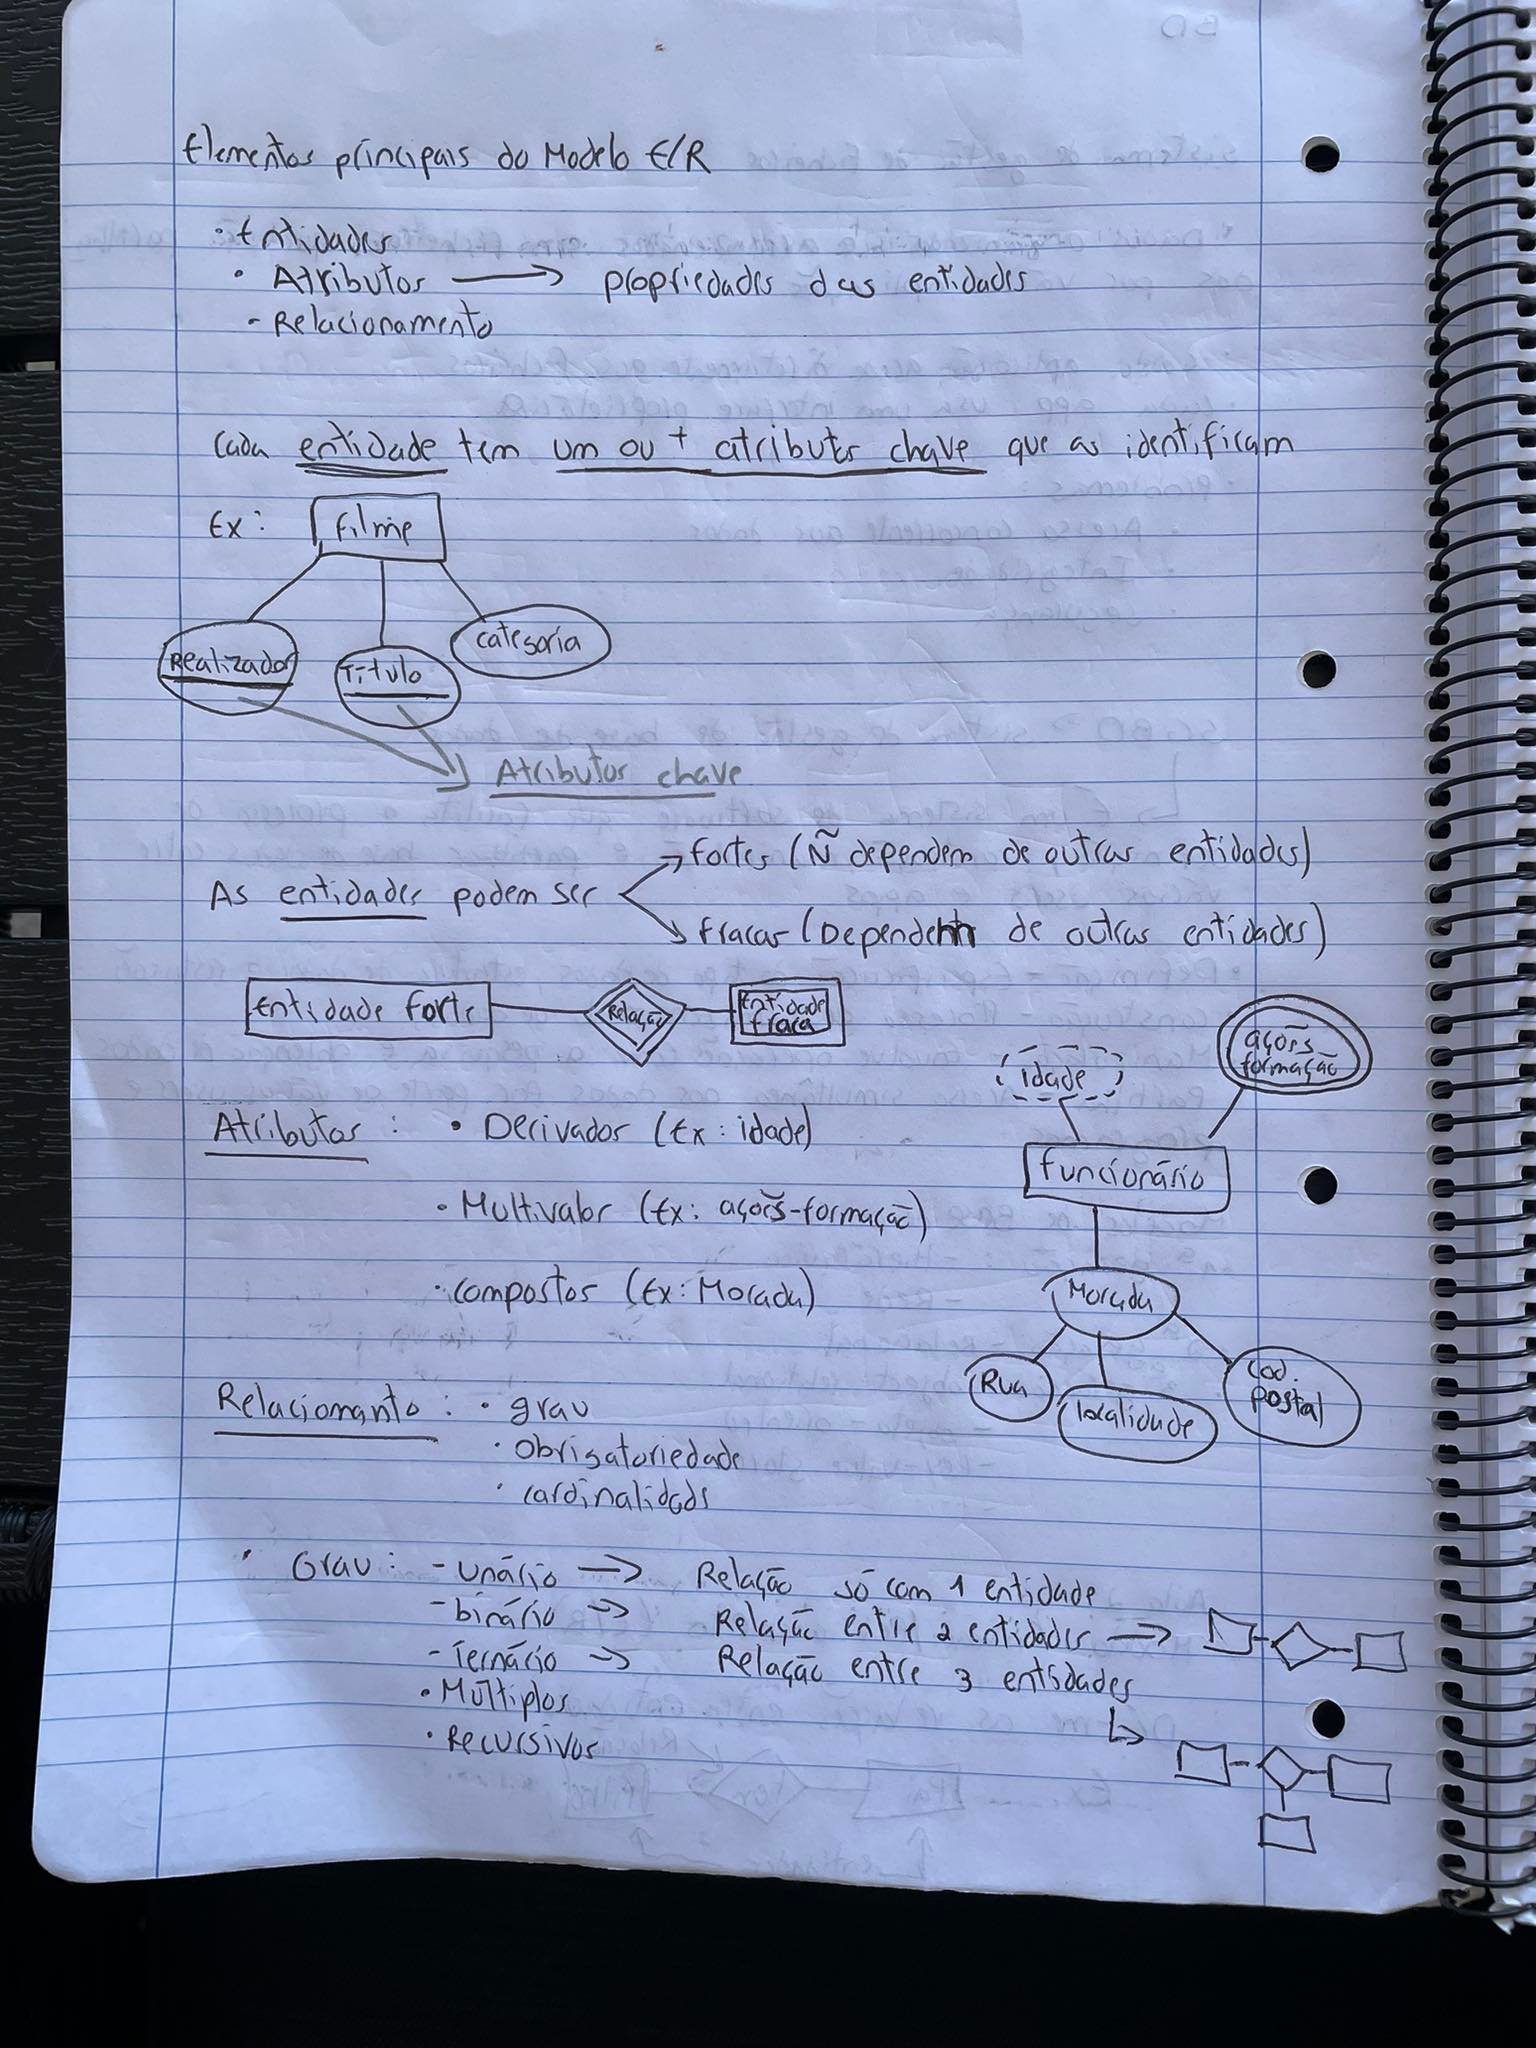 Elementos principais do Modelo E/R
· Entidades
· Atributos → propriedades das entidades
- Relacionamento
Cada entidade tem um ou + atributos chave que as identificam
Ex:
Filme
Realizador
Título
Categoria
Atributos chave
As entidades podem ser
→ fortes (Ñ dependem de outras entidades)
→ fracas (Dependem de outras entidades)
Entidade forte
Relação
Entidade
fraca
idade
ações
formação
Funcionário
Morada
Rua
localidade
Cod.
postal
Atributos : • Derivados (Ex: idade)
• Multivalor (Ex: ações-formação)
· compostos (Ex: Morada)
Relacionamento : · grau
· Obrigatoriedade
· cardinalidade
· Grau : - Unário → Relação só com 1 entidade
- binário → Relação entre 2 entidades →
- Ternário → Relação entre 3 entidades
• Múltiplos
· Recursivos